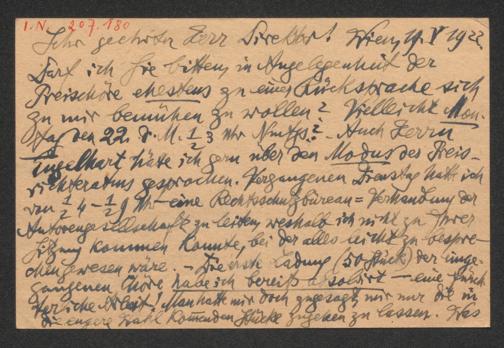 I.N. 207.180
Sehr geehrter Herr Direktor! Wien, 19. V 1922.
Darf ich Sie bitten, in Angelegenheit der
Preischöre ehestens zu einer Rücksprache sich
zu mir bemühen zu wollen? Vielleicht Mon-
tag den 22. d. M. ½ 3 Uhr Nmttgs? - Auch Herrn
Engelhart hätte ich gern über den Modus des Preis-
richteramtes gesprochen. Vergangenen Dienstag hatte ich
von ½ 4 - ½ 9 Uhr eine Rechtsschutzbureau = Verhandlung der
Autorengesellschaft zu leiten, weshalb ich nicht zu Ihrer
Sitzung kommen konnte, bei der alles leicht zu bespre-
chen gewesen wäre. - Die erste Ladung (50 Stück) der einge-
gangenen Chöre habe ich bereits absolviert - eine
Arbeit! Man hatte mir doch zugesagt, mir nur die in
die engere Wahl kommenden Stücke zugehen zu lassen. Was